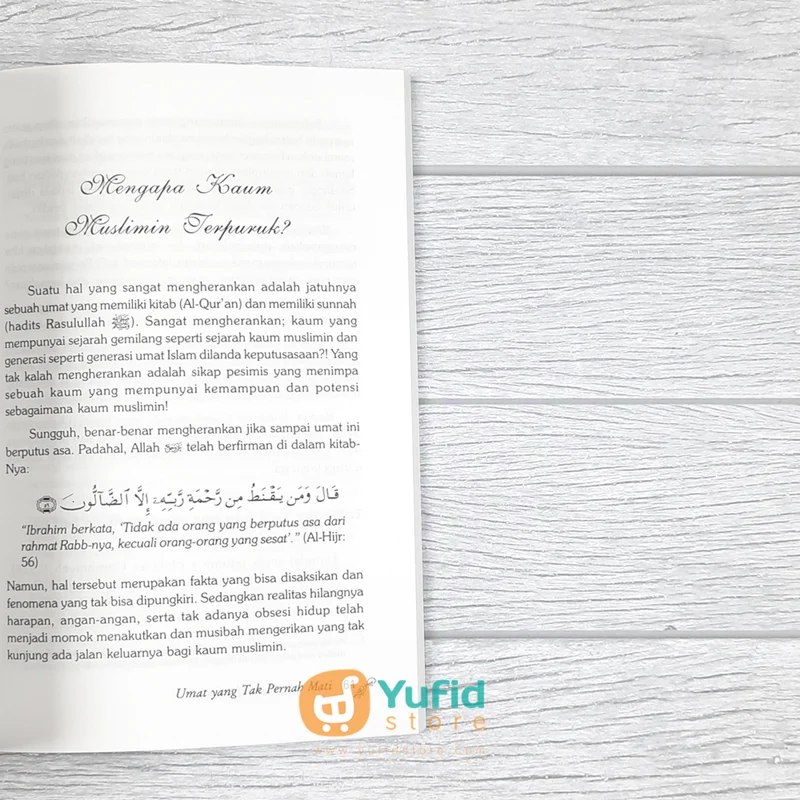 Mengapa Kaum
Muslimin Terpuruk?
Suatu hal yang sangat mengherankan adalah jatuhnya
sebuah umat yang memiliki kitab (Al-Qur'an) dan memiliki sunnah
(hadits Rasulullah ﷺ). Sangat mengherankan; kaum yang
mempunyai sejarah gemilang seperti sejarah kaum muslimin dan
generasi seperti generasi umat Islam dilanda keputusasaan?! Yang
tak kalah mengherankan adalah sikap pesimis yang menimpa
sebuah kaum yang mempunyai kemampuan dan potensi
sebagaimana kaum muslimin!
Sungguh, benar-benar mengherankan jika sampai umat ini
berputus asa. Padahal, Allah telah berfirman di dalam kitab-
Nya:
قَالَ وَمَن يَقْنَطُ مِن رَّحْمَةِ رَبِّهِۦٓ إِلَّا ٱلضَّآلُّونَ ۝٥٦
"Ibrahim berkata, 'Tidak ada orang yang berputus asa dari
rahmat Rabb-nya, kecuali orang-orang yang sesat'." (Al-Hijr:
56)
Namun, hal tersebut merupakan fakta yang bisa disaksikan dan
fenomena yang tak bisa dipungkiri. Sedangkan realitas hilangnya
harapan, angan-angan, serta tak adanya obsesi hidup telah
menjadi momok menakutkan dan musibah mengerikan yang tak
kunjung ada jalan keluarnya bagi kaum muslimin.
Umat yang Tak Pernah Mati
Yufid
store
www.yufidstore.com